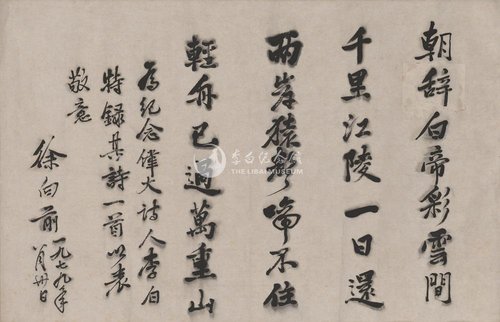 朝辞白帝彩雲間
千里江陵一日還
两岸猿声啼不住
輕舟已過萬重山
为紀念偉大詩人李白
特録其詩一首以表
敬意
徐向前
一九七九年
月卅日
李白纪念馆
THE LIBAI MUSEUM